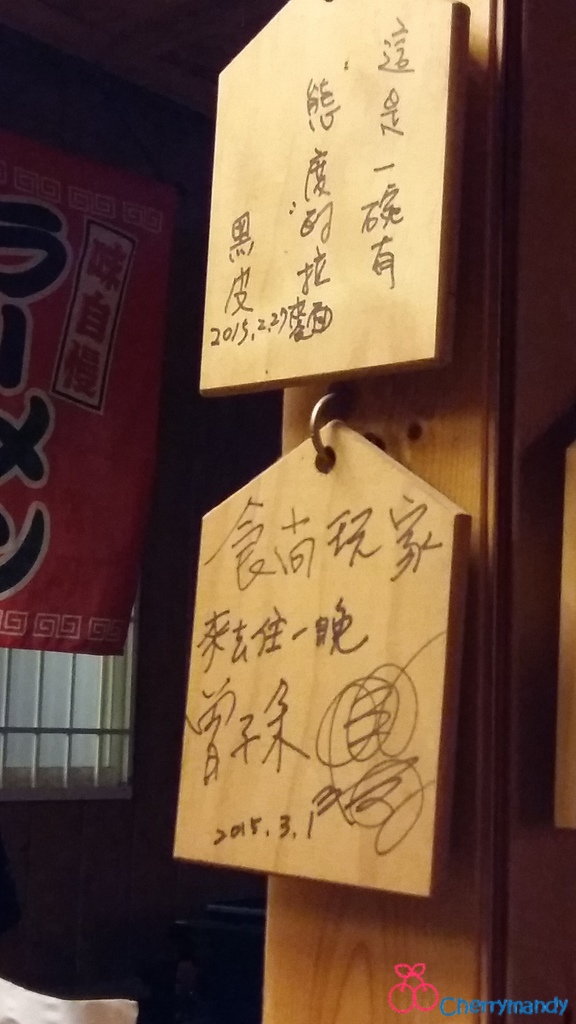 這是一碗有
態度的拉麵
黑皮
2015.2.27
食尚玩家
來去住一晚
曾子余
2015.3.1
味自慢
ラーメン
Cherrymandy